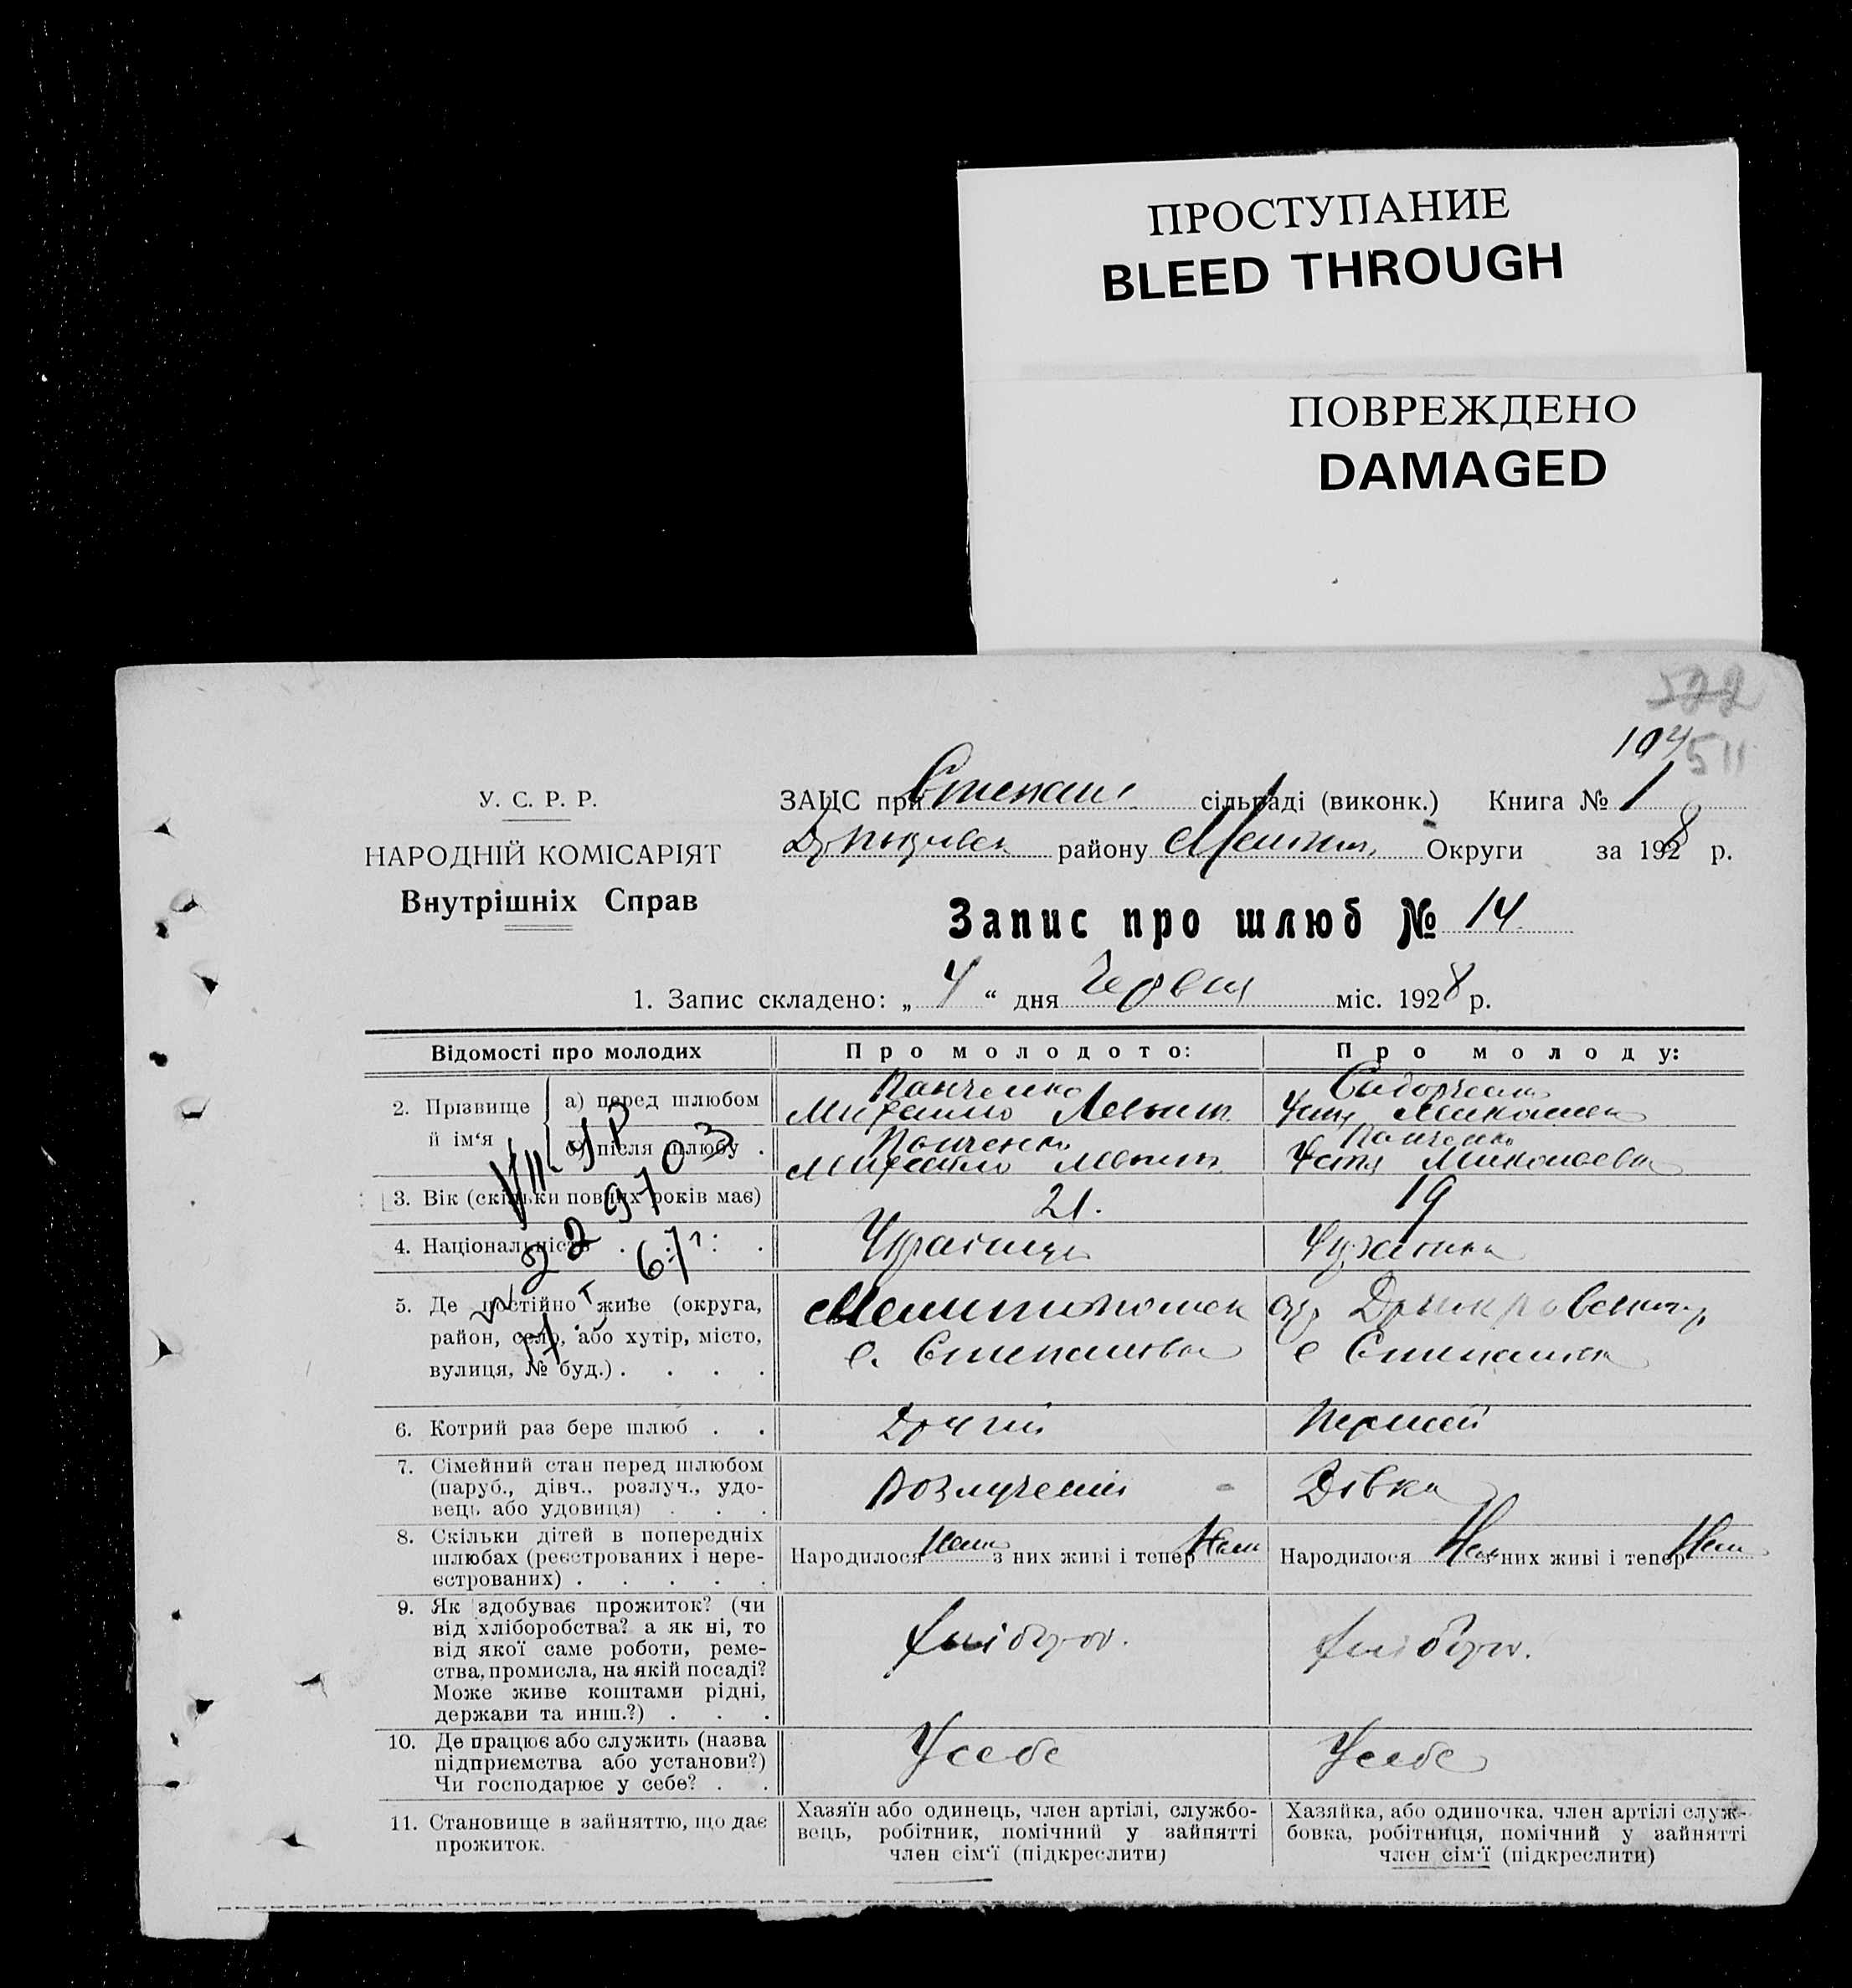 ПРОСТУПАНИЕ
BLEED THROUGH
ПОВРЕЖДЕНО
DAMAGED
522
104
511
У. С. Р. Р.
НАРОДНІЙ КОМІСАРІЯТ
Внутрішніх Справ
ЗАЦС при Степані сільраді (виконк.) Книга № 1
району Меліт. Округи за 1928 р.
Запис про шлюб № 14
1. Запис складено: „ 4 “ дня Червня міс. 1928 р.
Відомості про молодих
Про молодого:
Про молоду:
2. Прізвище й ім‘я
а) перед шлюбом
Панченко
Михайло
Сидорченко
Устя Миколаевна
б) після шлюбу .
Панченко
Михайло
Панченко
Устя Миколаевна
3. Вік (скільки повних років має)
21.
19
4. Національність . . . .
Українець
5. Де постійно живе (округа,
район, село, або хутір, місто,
вулиця, № буд.) . . . .
Мелитопольск
с. Степанівка
с Степанівка
VII УР
9703
22
67 г.
6. Котрий раз бере шлюб . .
Другий
Первий
7. Сімейний стан перед шлюбом
(паруб., дівч., розлуч., удо-
вець або удовиця) . . .
Розлучений
Дівка
8. Скільки дітей в попередніх
шлюбах (реєстрованих і нере-
єстрованих) . . . . .
Народилося Нема з них живі і тепер Нема
Народилося Нема з них живі і тепер Нема
9. Як здобуває прожиток? (чи
від хліборобства? а як ні, то
від якої саме роботи, реме-
ства, промисла, на якій посаді?
Може живе коштами рідні,
держави та инш.?) . . .
Хлібороб.
Хлібороб.
10. Де працює або служить (назва
підприємства або установи?)
Чи господарює у себе? . .
У себе
У себе
11. Становище в зайняттю, що дає
прожиток.
Хазяїн або одинець, член артілі, службо-
вець, робітник, помічний у зайнятті
член сім‘ї (підкреслити)
Хазяйка, або одиночка. член артілі служ-
бовка, робітниця, помічний у зайнятті
член сім‘ї (підкреслити)